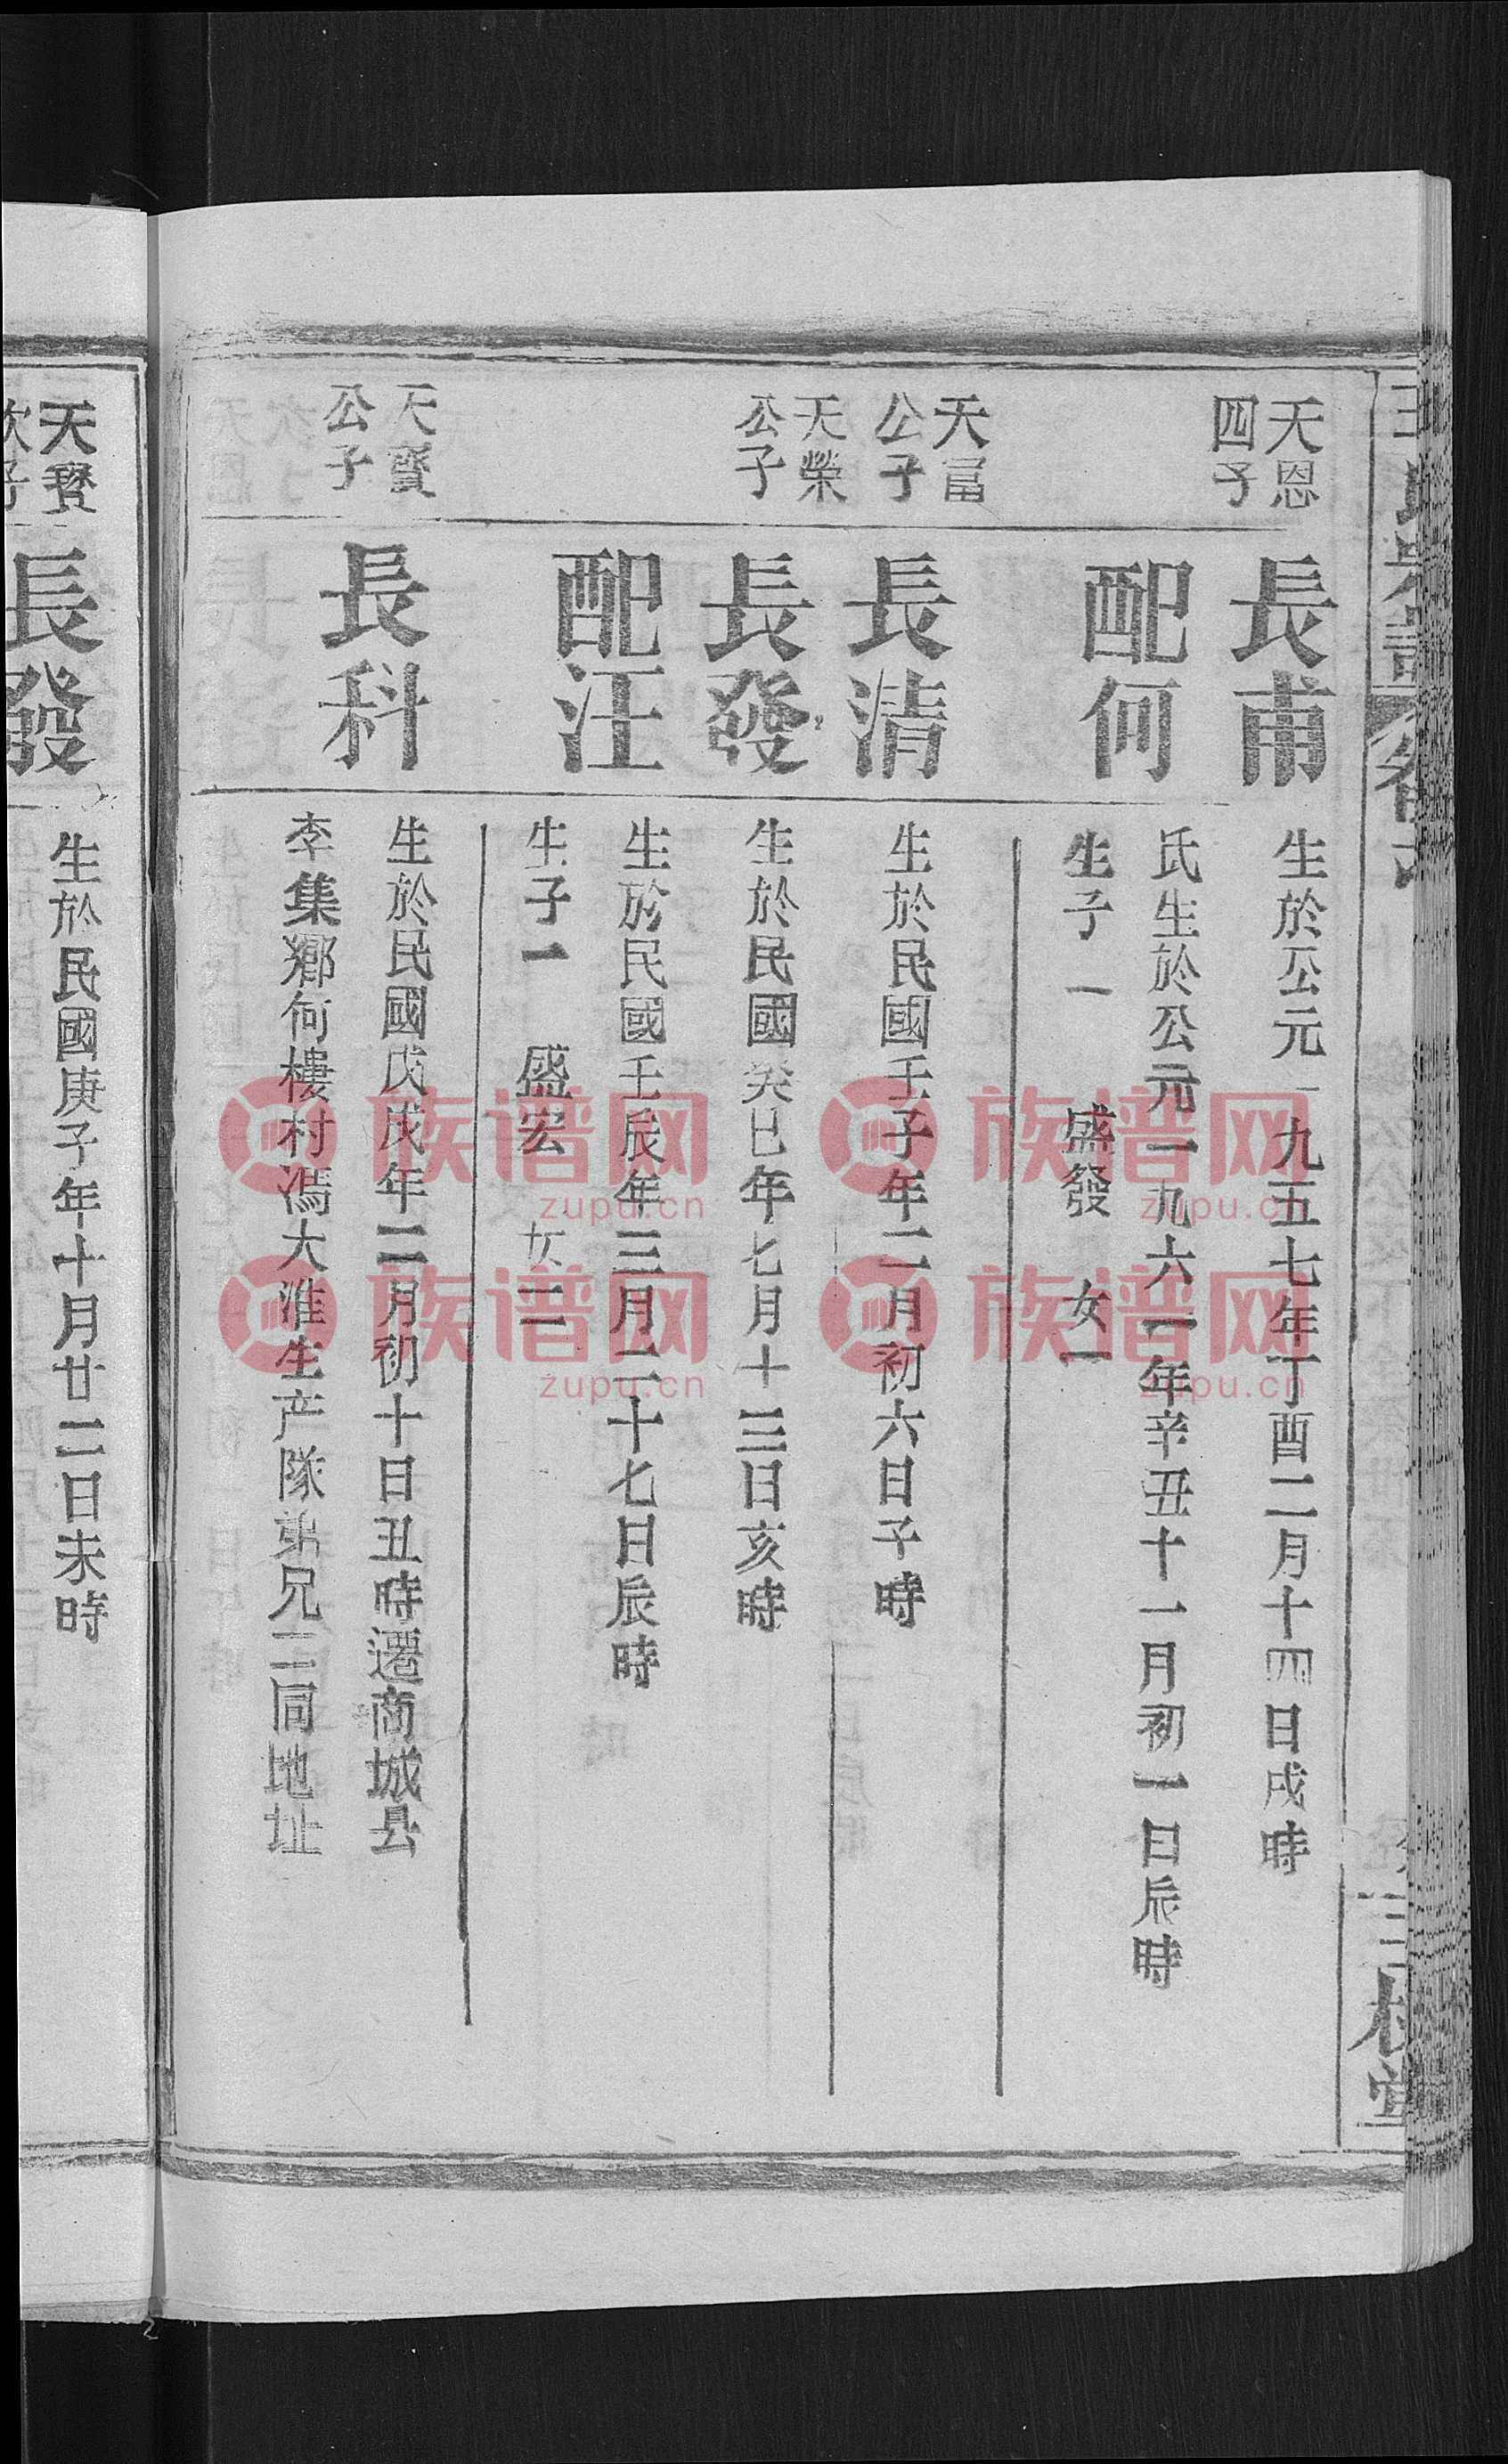 天恩
四子
長甫
生於公元一九五七年丁酉二月十四日戌時
配何
氏生於公元一九六一年辛丑十一月初一日辰時
生子一 盛發 女一
天富
公子
長清
生於民國壬子年二月初六日子時
天榮
公子
長發
生於民國癸巳年七月十三日亥時
配汪
生於民國壬辰年三月二十七日辰時
生子一 盛宏 女二
天寶
公子
長科
生於民國戊戌年二月初十日丑時遷商城县
李集鄉何樓村馮大淮生产隊弟兄三同地址
天寶
次子
長發
生於民國庚子年十月廿二日未時
三槐堂
族谱网
zupu.cn
族谱网
zupu.cn
族谱网
zupu.cn
族谱网
zupu.cn